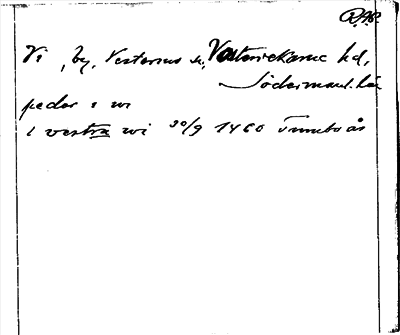 RAP.
Vi, by, Västermo sn, Västerrekarne hd,
Södermanl. län
pedar i wi
i vestra wi 20/9 1460 Tumbo ås